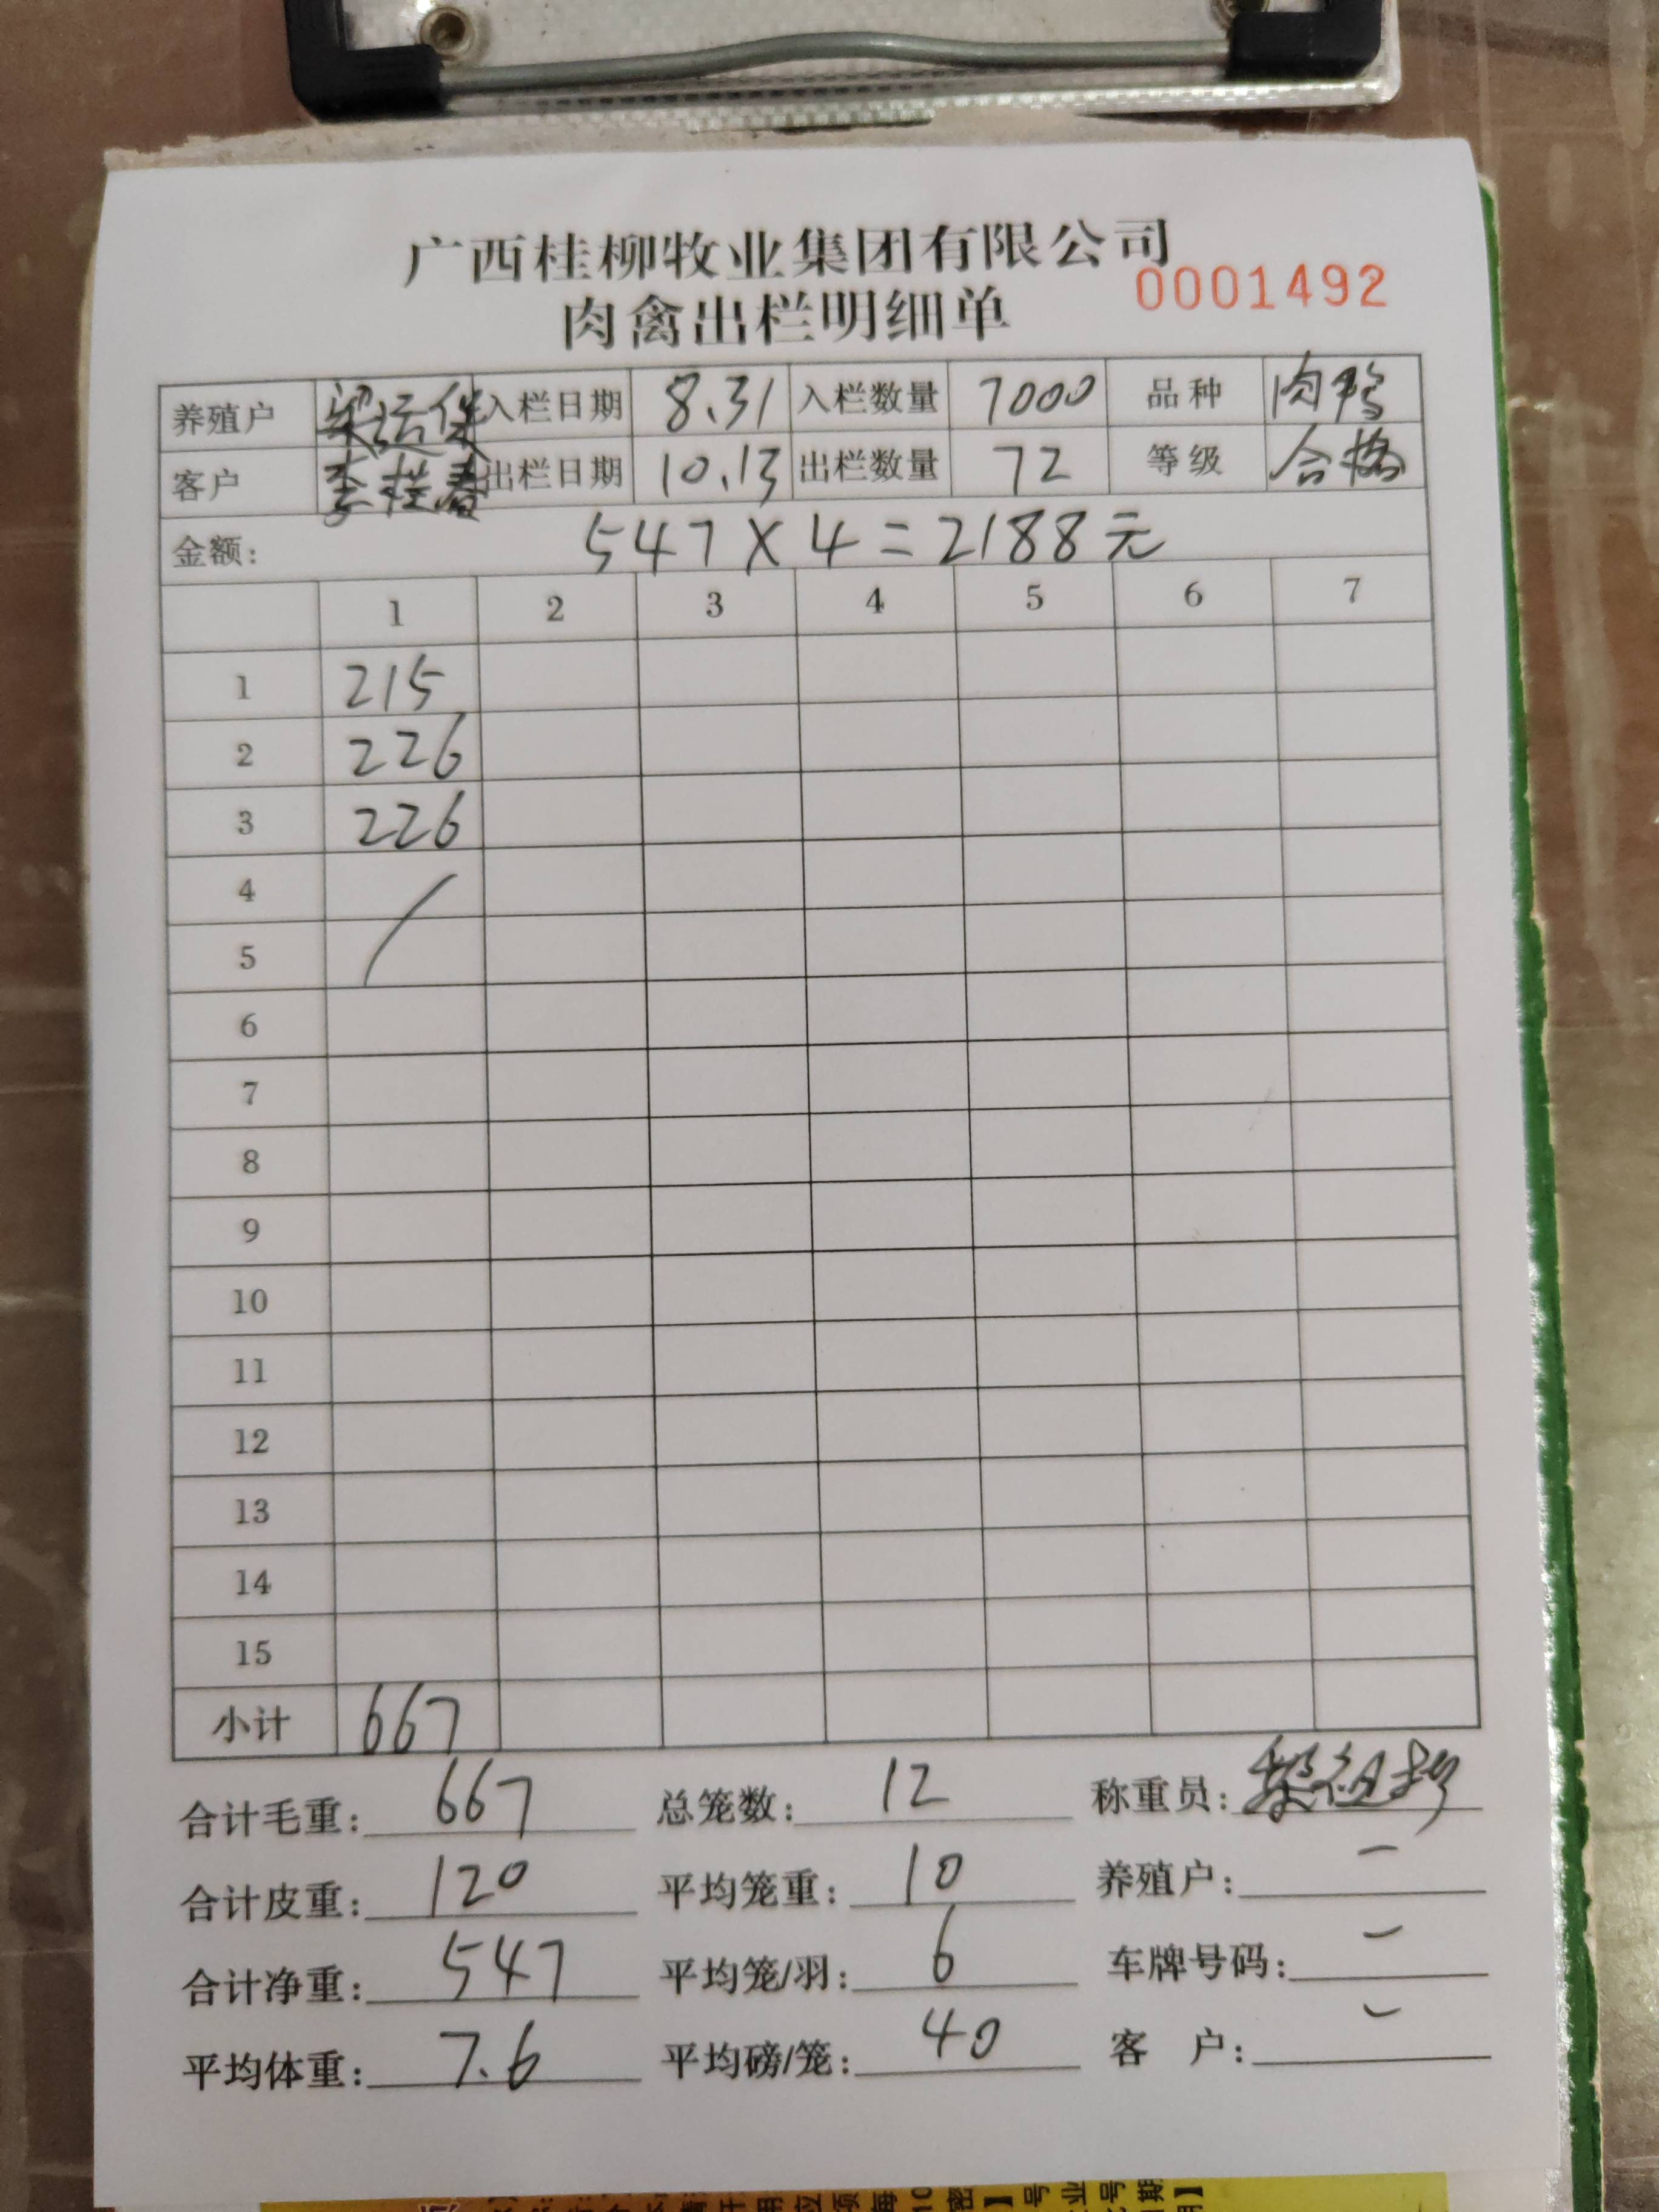 广西桂柳牧业集团有限公司
肉禽出栏明细单 0001492
养殖户 梁运保 入栏日期 8.31 入栏数量 7000 品种 肉鸭
客户 李桂春 出栏日期 10.13 出栏数量 72 等级 合格
金额: 547×4=2188元
1 2 3 4 5 6 7
1 215
2 226
3 226
4
5
6
7
8
9
10
11
12
13
14
15
小计 667
合计毛重: 667 总笼数: 12 称重员:
合计皮重: 120 平均笼重: 10 养殖户:
合计净重: 547 平均笼/羽: 6 车牌号码:
平均体重: 7.6 平均磅/笼: 40 客 户: